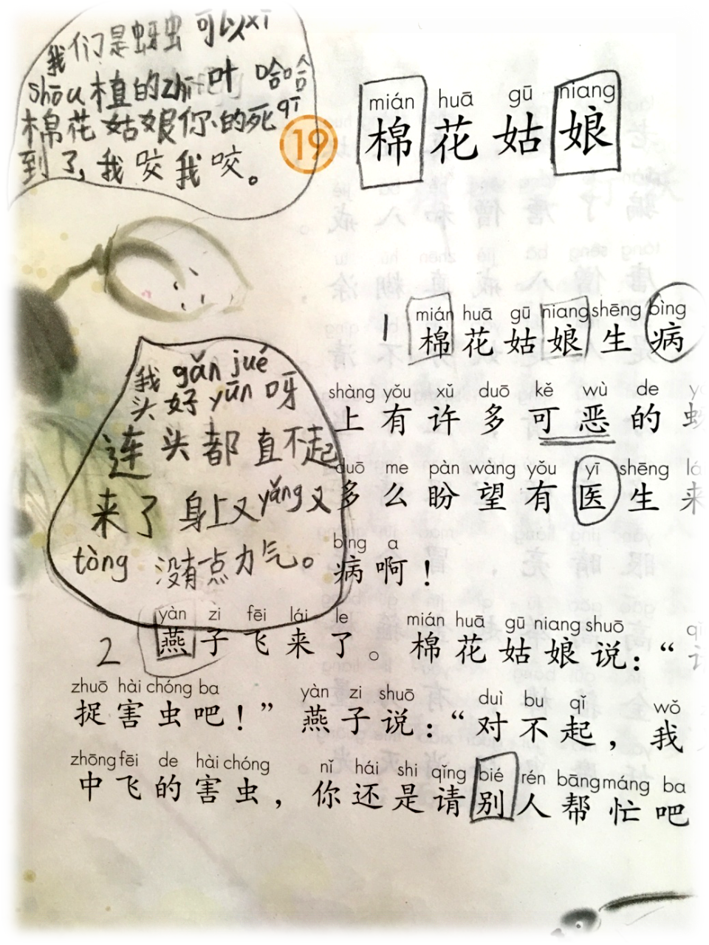 我们是蚜虫可以xī
shōu植的zhī叶 哈哈
棉花姑娘你的死qī
到了,我咬我咬。
19
mián huā gū niang
棉花姑娘
1
mián huā gū niang shēng bìng
棉花姑娘生病
shàng yǒu xǔ duō kě wù de
上有许多可恶的
duō me pàn wàng yǒu yī shēng lá
多么盼望有医生来
bìng a
病啊!
我gǎn jué
头好yūn呀
连头都直不起
来了身上又yǎng又
tòng 没有点力气。
2
yàn zi fēi lái le mián huā gū niang shuō
燕子飞来了。棉花姑娘说:“
zhuō hài chóng ba yàn zi shuō duì bu qǐ wǒ
捉害虫吧!”燕子说:“对不起,我
zhōng fēi de hài chóng nǐ hái shi qǐng bié rén bāng máng ba
中飞的害虫,你还是请别人帮忙吧